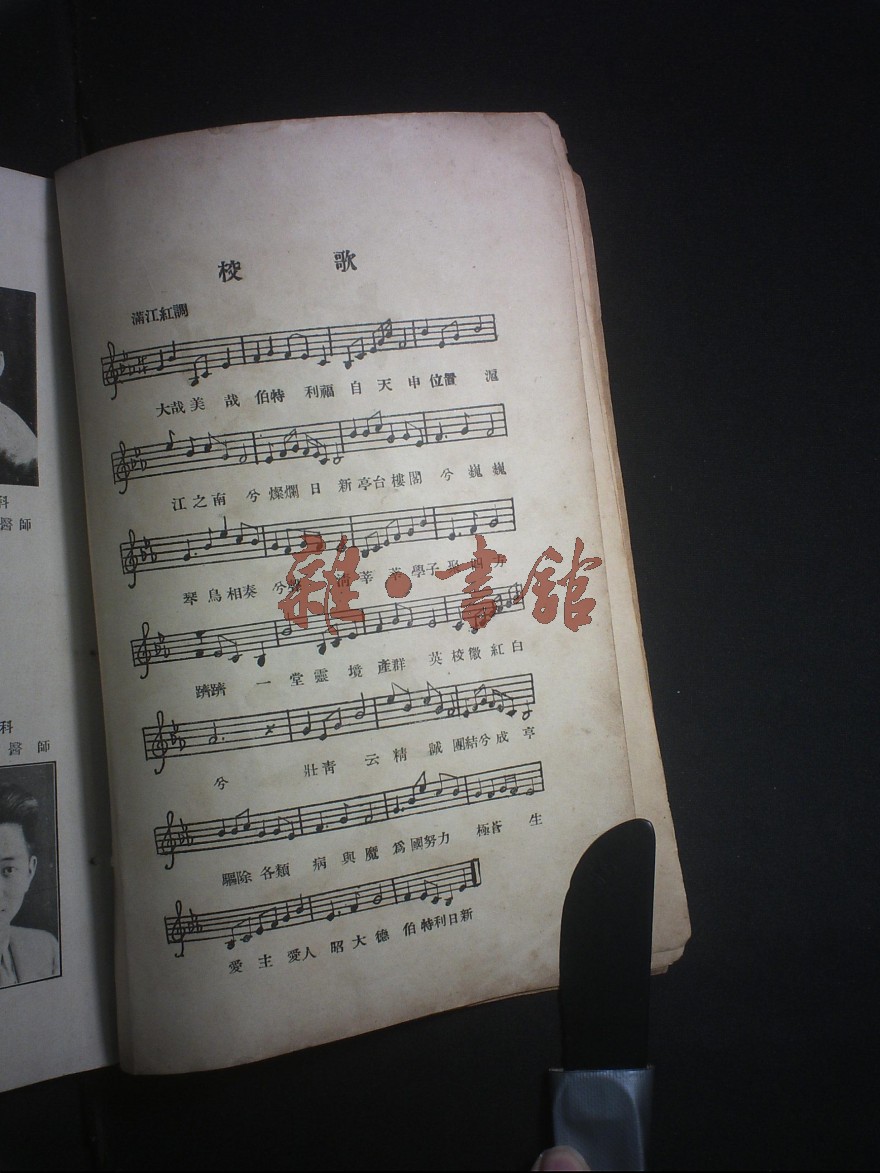 校歌
滿江紅調
大哉美哉伯特利福自天申位置滬
江之南兮燦爛日新亭台樓閣兮巍巍
琴鳥相奏兮聲清莘莘學子聚四方
躋躋一堂靈境產群英校徽紅白
兮壯青云精誠團結兮成亭
驅除各類病與魔爲國努力極蒼生
愛主愛人昭大德伯特利日新
雜·書舘
科
醫師
科
醫師